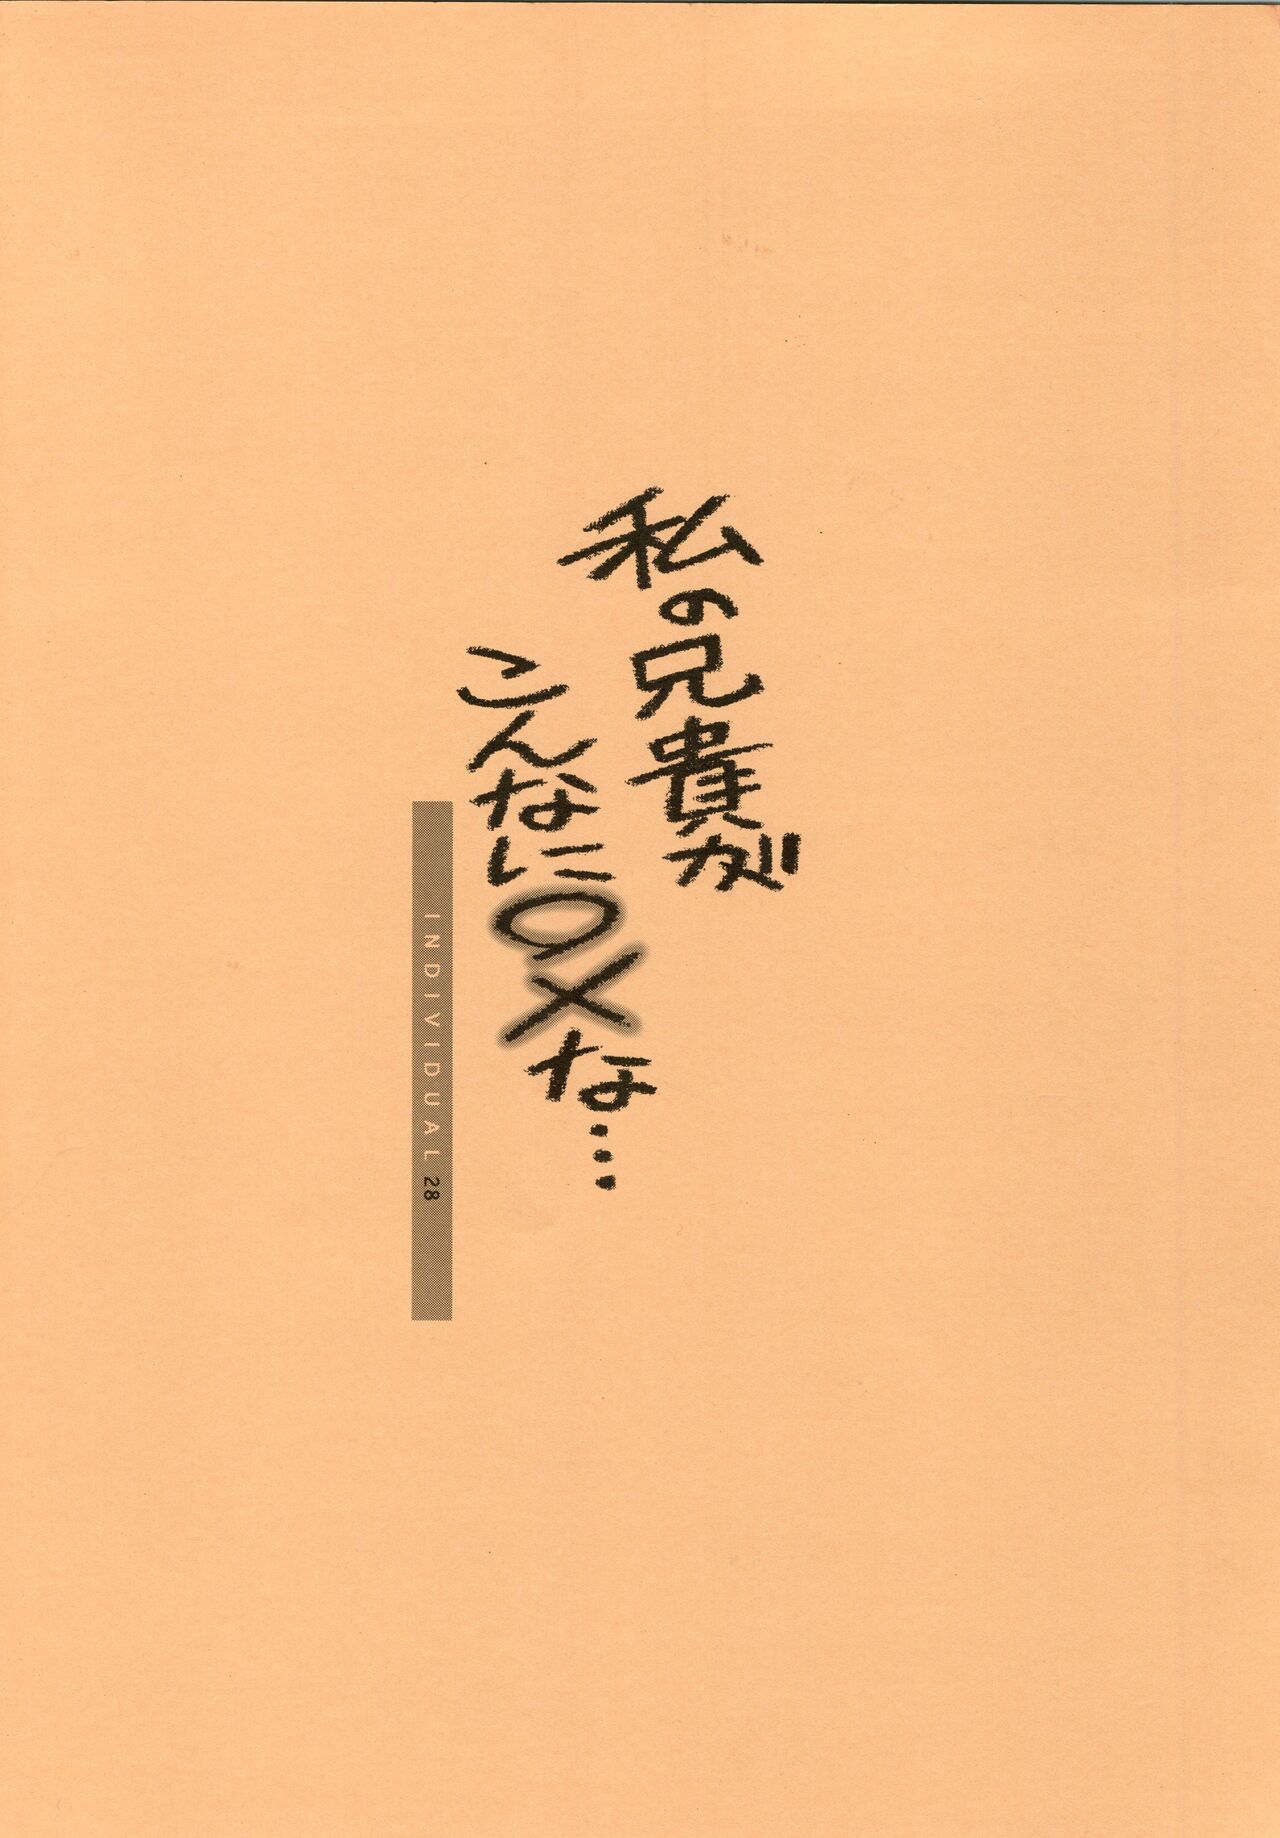 私の兄貴が
こんなに○×な…
INDIVIDUAL 28